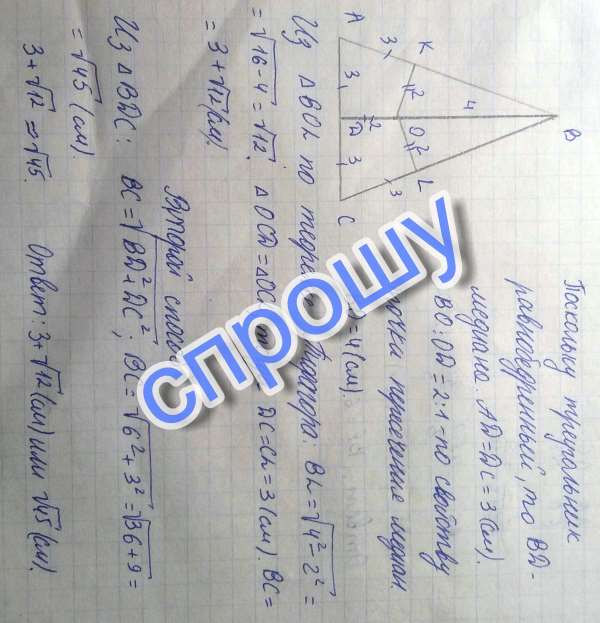 B
K
A
3
4
2
O
2
L
3
2
D
3
3
C
Поскольку треугольник
равнобедренный, то BD-
медиана. AD=DC=3(см).
BO:OD=2:1-по свойству
точки пересечение медиан.
=4(см).
Из ΔBOL по теореме Пифагора. BL=√4²-2²=
=√16-4=√12. ΔOCD=ΔOC DC=CL=3(см). BC=
=3+√12(см).
Второй способ
Из ΔBDC: BC=√BD²+DC²; BC=√6²+3²=√36+9=
=√45 (см).
3+√12 => √45. Ответ: 3+√12(см) или √45(см).
спрошу